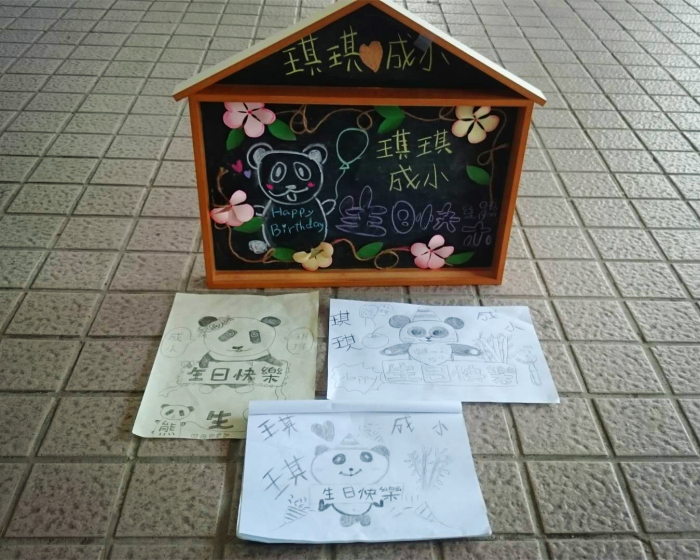 琪琪成小
琪琪
成小
Happy
Birthday
生日快樂
生日快樂
熊
生
琪
琪
成
小
Happy
生日快樂
琪
琪
成小
生日快樂